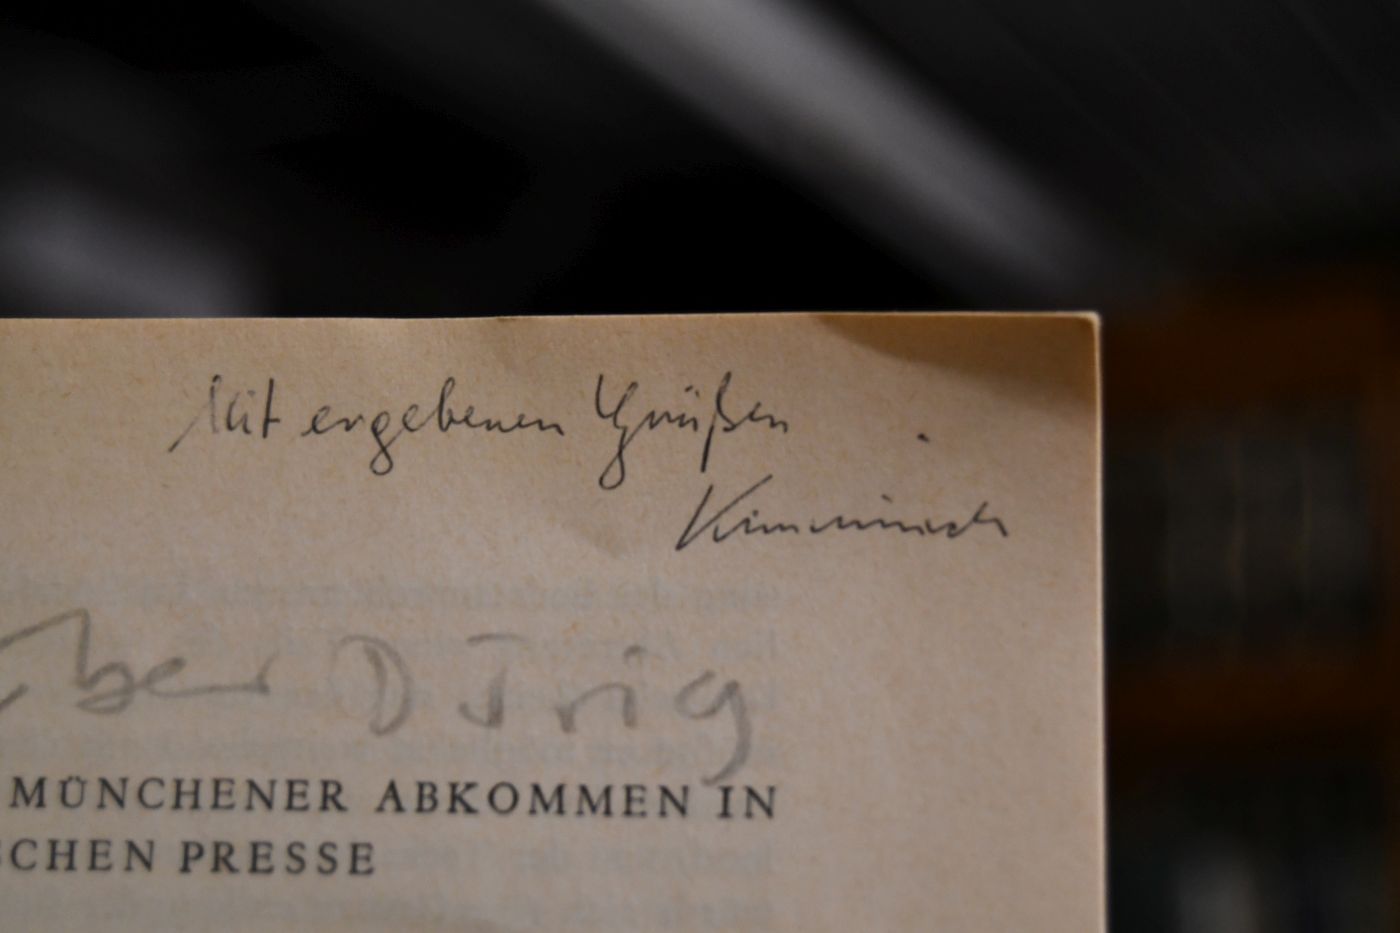 Mit ergebenen Grüßen
Kimminich
MÜNCHENER ABKOMMEN IN
SCHEN PRESSE